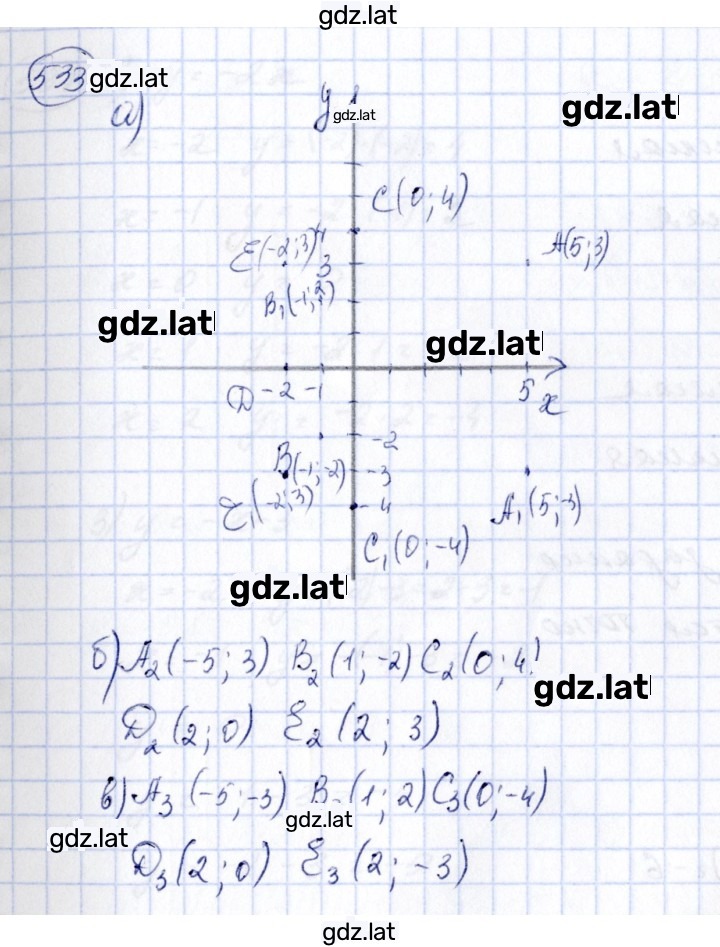 gdz.lat
533 gdz.lat
а) y gdz.lat gdz.lat
C(0; 4)
E(-2; 3) 4 A(5; 3)
3
B₁(-1; 2)
gdz.lat gdz.lat
D -2 -1 5 x
-2
B(-1; -2) -3
E₁(-2; 3) -4 A₁(5; -3)
C₁(0; -4)
gdz.lat
б) A₂(-5; 3) B₂(1; -2) C₂(0; 4)
gdz.lat
D₂(2; 0) E₂(2; 3)
в) A₃(-5; -3) B₃(1; 2) C₃(0; -4)
gdz.lat gdz.lat
D₃(2; 0) E₃(2; -3)
gdz.lat